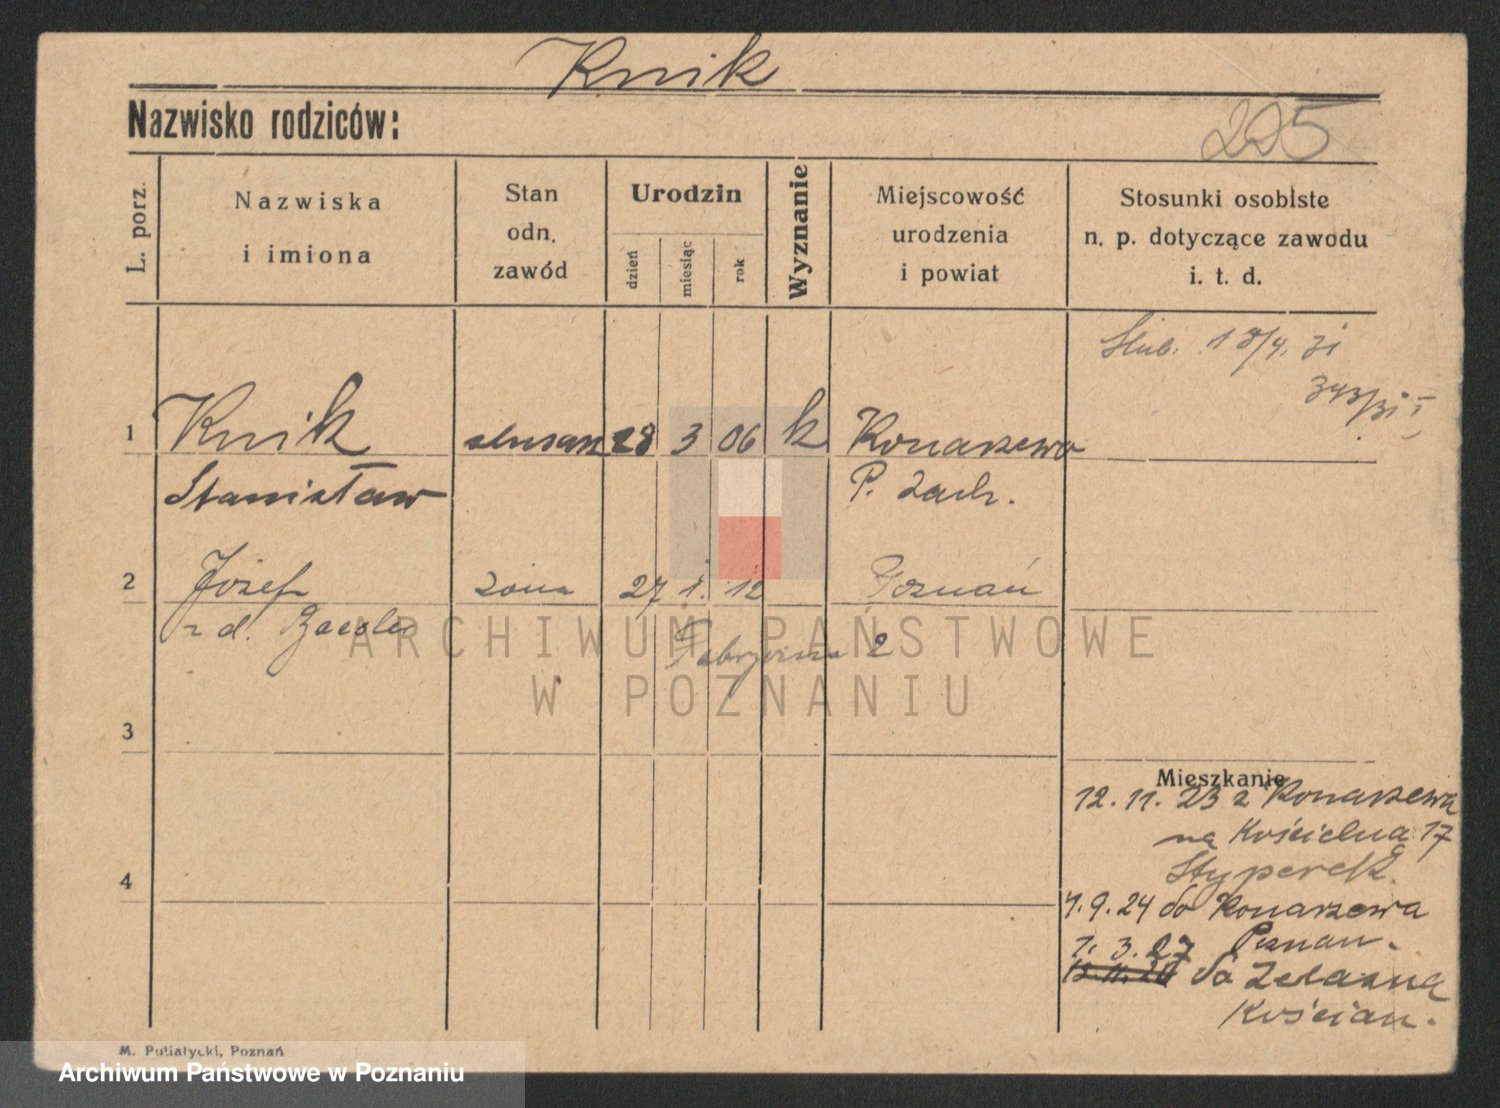 Knik
Nazwisko rodziców:
225
L. porz.
Nazwiska
i imiona
Stan
odn.
zawód
Urodzin
dzień
miesiąc
rok
Wyznanie
Miejscowość
urodzenia
i powiat
Stosunki osobiste
n. p. dotyczące zawodu
i. t. d.
Ślub. 18/4. 31
343/31 I
1 Knik ślusarz 28 3 06 k Konarzewo
Stanisław P. Zach.
2 Józefa żona 27 1. 12 Poznań
z d.
Fabryczna 2
ARCHIWUM PAŃSTWOWE
W POZNANIU
3
Mieszkanie
12. 11. 23 z Konarzewa
na Kościelna 17
Styperek.
4
1. 9. 24 do Konarzewa
1. 3. 27 Poznań.
do Żelazna
Kościan.
M. Putiatycki, Poznań
Archiwum Państwowe w Poznaniu